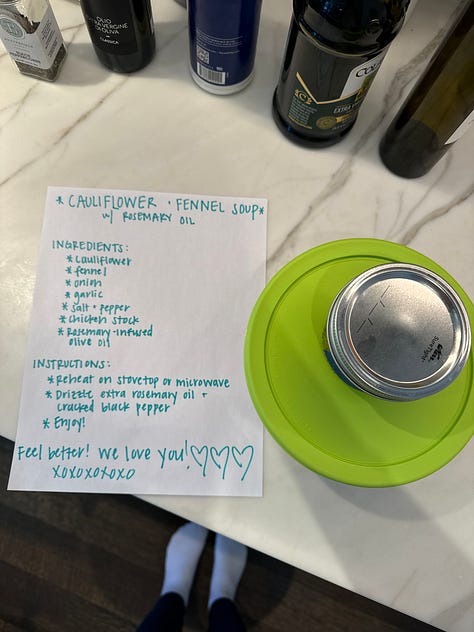 OLIO
EXTRA VERGINE
DI OLIVA
CLASSICO
COL
EXTRA
* CAULIFLOWER + FENNEL SOUP*
w/ ROSEMARY OIL
INGREDIENTS:
* cauliflower
* fennel
* onion
* garlic
* salt + pepper
* chicken stock
* Rosemary-infused
olive oil
INSTRUCTIONS:
* Reheat on stovetop or microwave
* Drizzle extra rosemary oil +
cracked black pepper
* Enjoy!
Feel better! We love you!
xoxoxoxoxo
Ball
SureTight